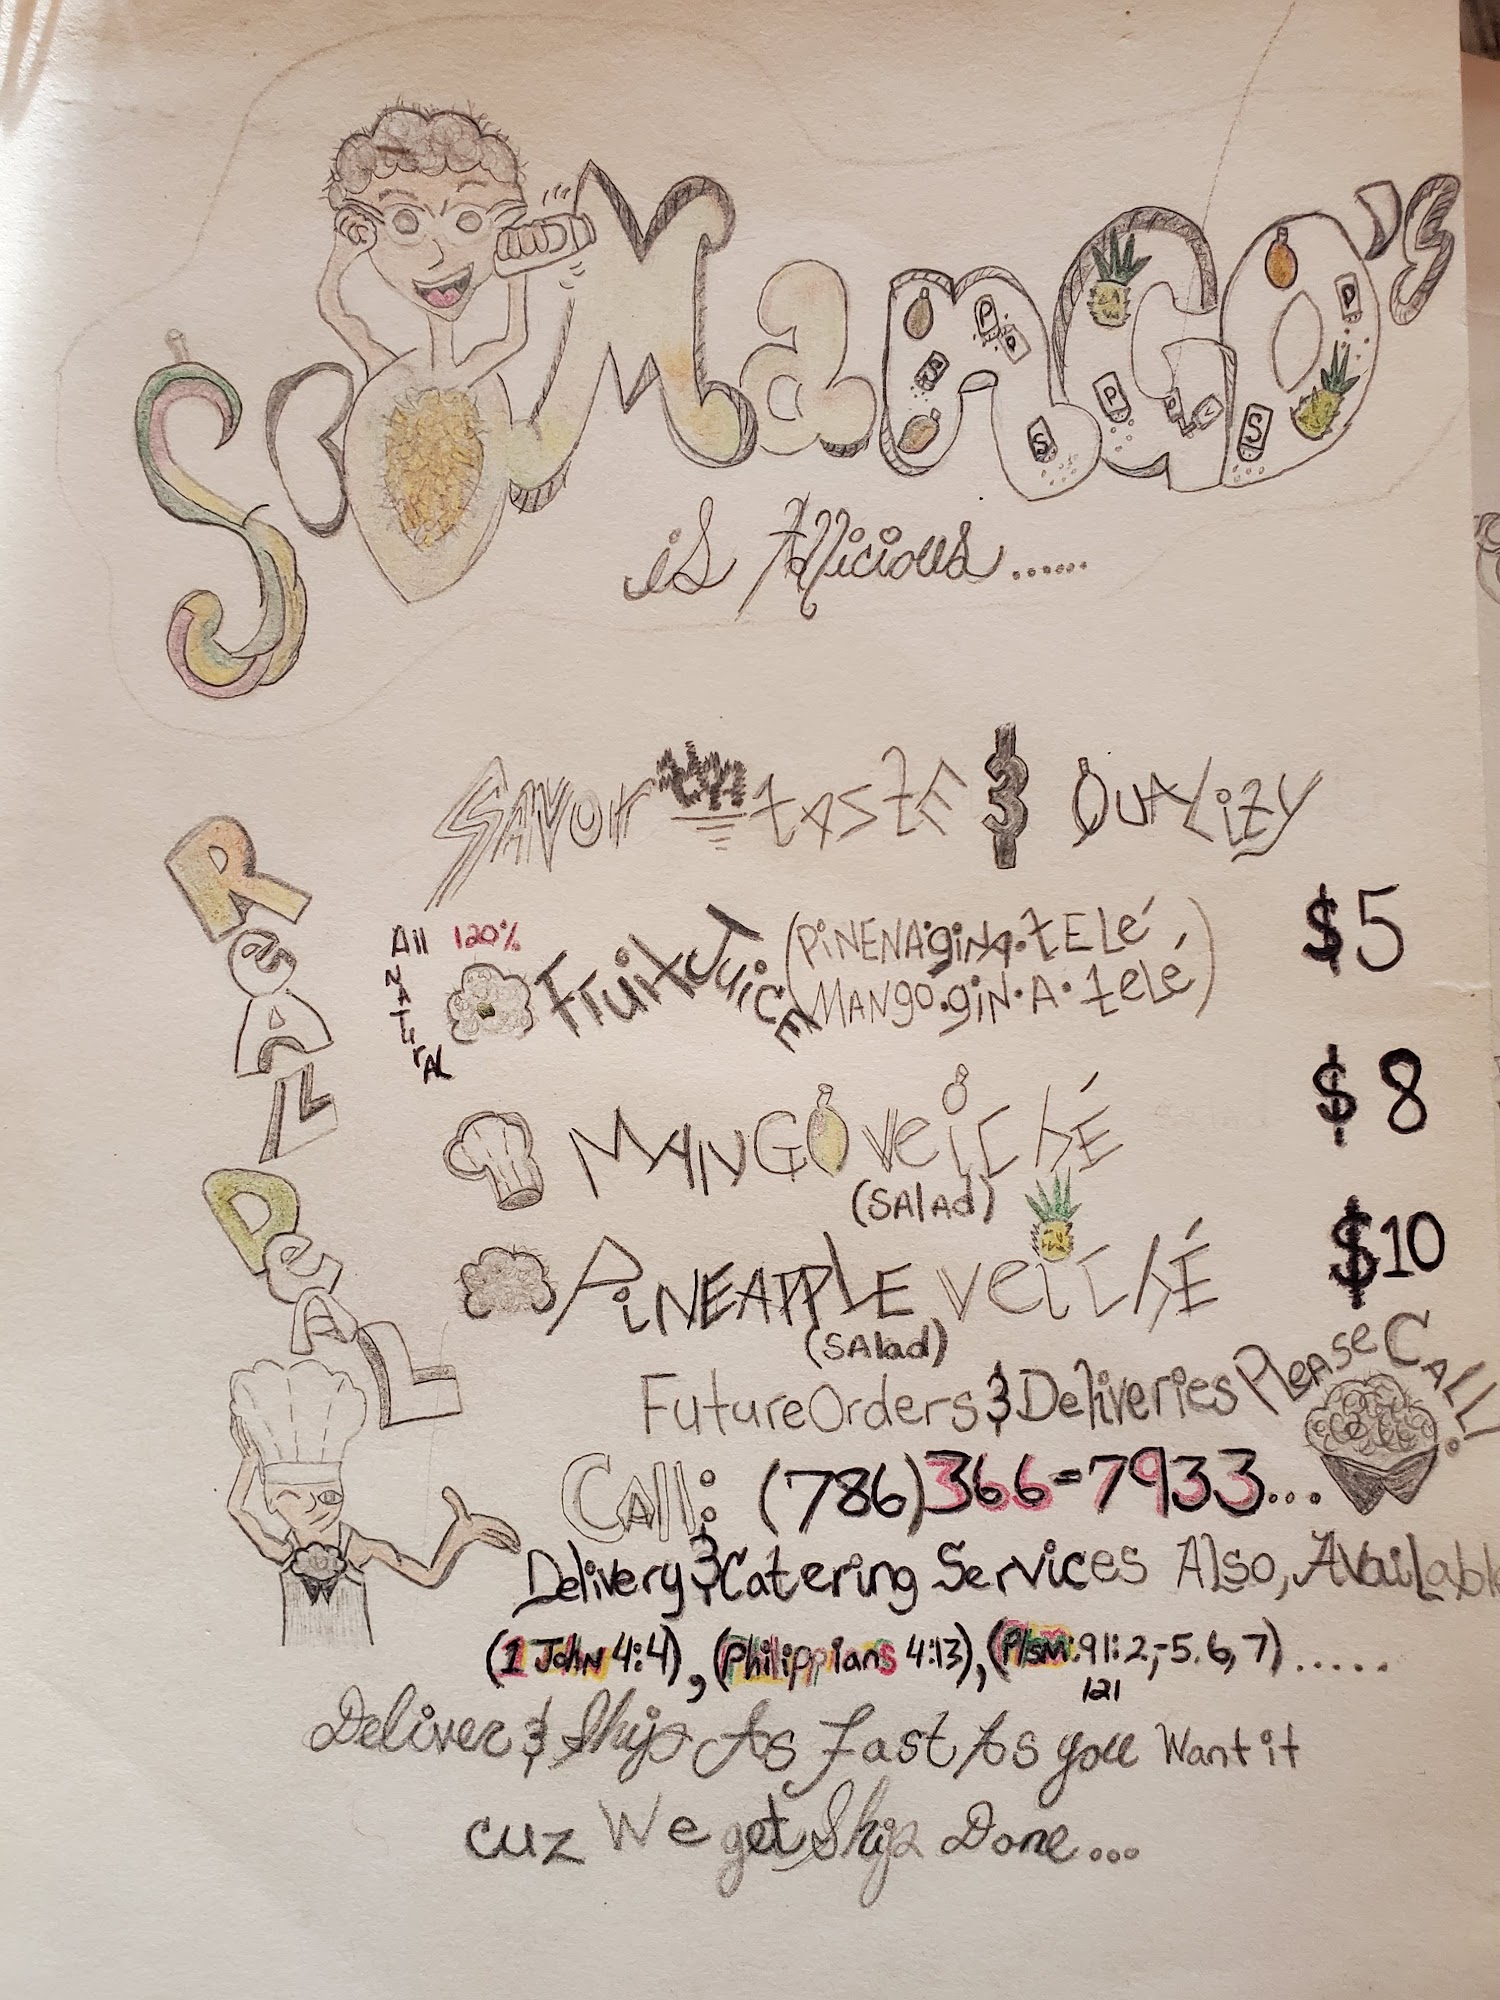 So Mango's
is
Savor taste & Quality
Real Deal
All 120%
Natural
Fruit Juice (PiNENA·giNA·tELé,
MANGO·giN·A·telé)
$5
MANGO Veiché
(SAlAd)
$8
PiNEAPPLE Veiché
(SAlad)
$10
Future Orders & Deliveries Please CALL!
Call: (786)366-7933...
Delivery & Catering Services Also, Available
(1 John 4:4), (Philippians 4:13), (Plsm:91:2,-5.6,7).....
121
Deliver & Ship As Fast As you Want it
cuz We get Done...